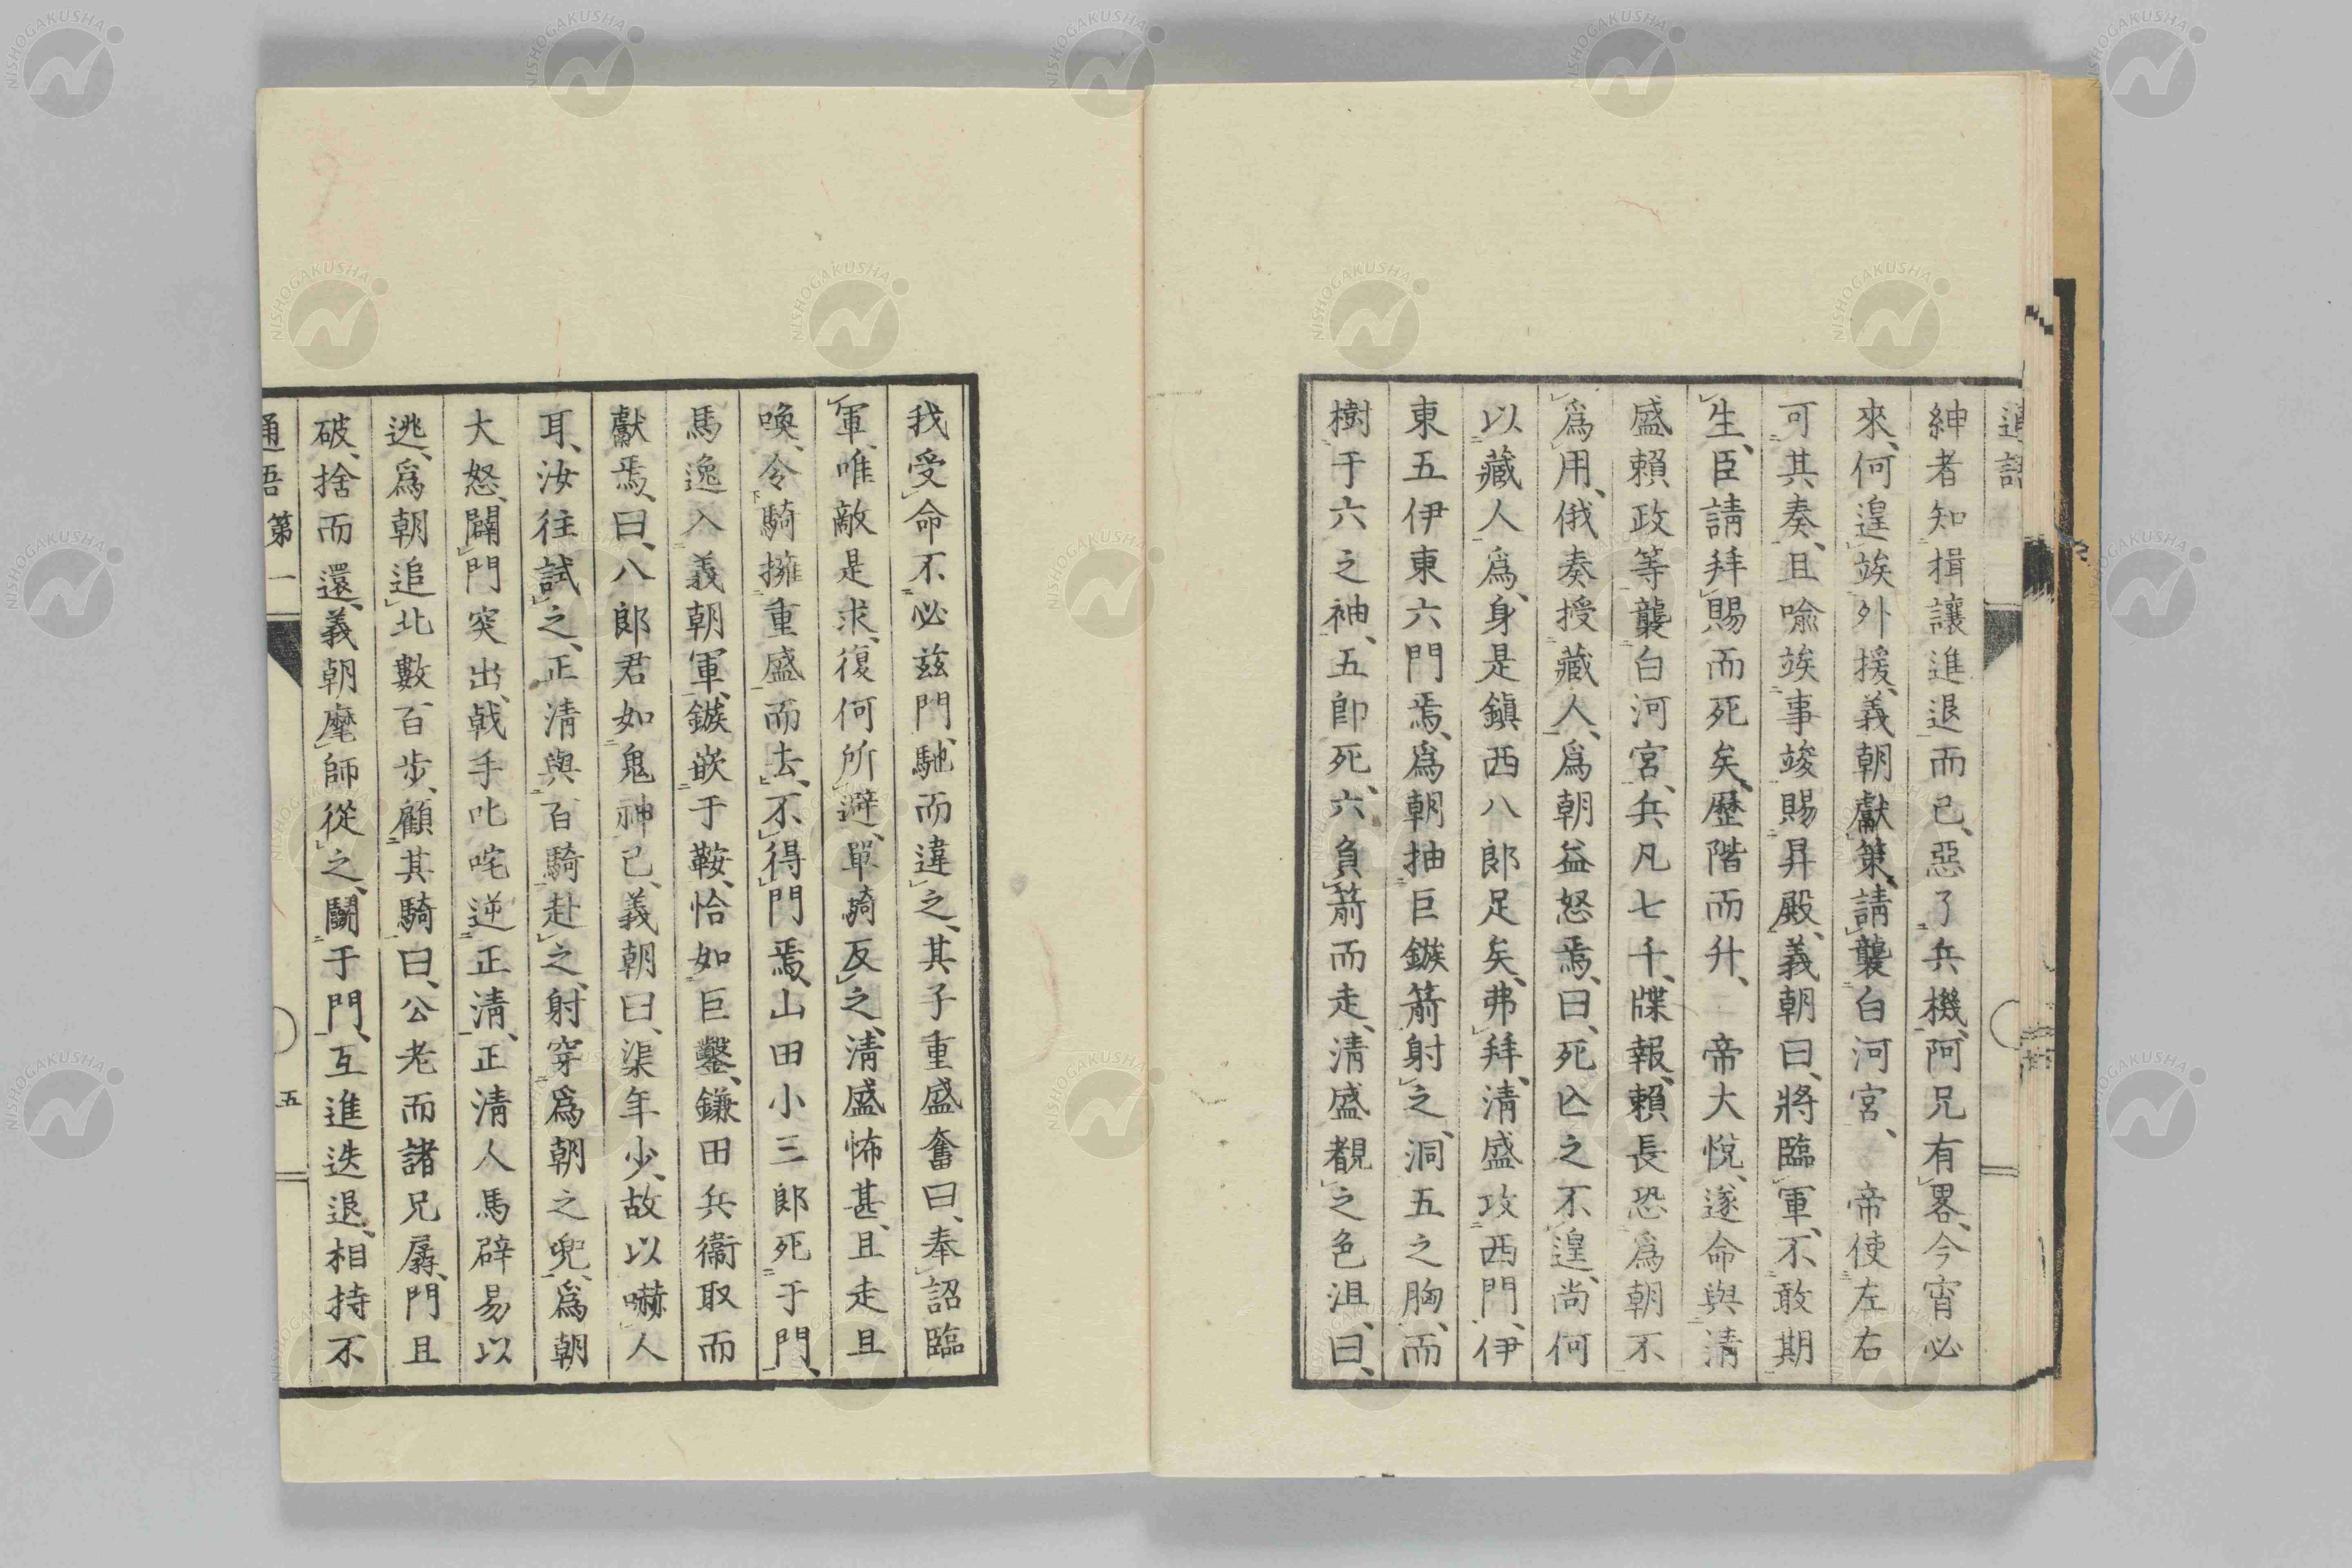 紳者知揖讓進退而已、惡了兵機、阿兄有畧、今宵必
來、何遑竢外援、義朝獻策、請襲白河宮、帝使左右
可其奏、且喩竢事竣賜昇殿、義朝曰、將臨軍、不敢期
生、臣請拜賜而死矣、歷階而升、帝大悅、遂命與清
盛賴政等襲白河宮、兵凡七千、牒報、賴長恐爲朝不
爲用、俄奏授藏人、爲朝益怒焉、曰、死亾之不遑、尚何
以藏人爲、身是鎭西八郎足矣、弗拜、清盛攻西門、伊
東五伊東六門焉、爲朝抽巨鏃箭射之、洞五之胸、而
樹于六之袖、五卽死、六負箭而走、清盛覩之色沮、曰、
我受命不必茲門、馳而違之、其子重盛奮曰、奉詔臨
軍、唯敵是求、復何所避、單騎反之、清盛怖甚、且走且
喚、令騎擁重盛而去、不得門焉、山田小三郎死于門、
馬逸入義朝軍、鏃嵌于鞍、恰如巨鑿、鎌田兵衞取而
獻焉、曰、八郎君如鬼神已、義朝曰、渠年少、故以嚇人
耳、汝往試之、正清與百騎赴之、射穿爲朝之兜、爲朝
大怒、闢門突出、戟手叱咤逆正清、正清人馬辟易以
逃、爲朝追北數百步、顧其騎曰、公老而諸兄孱、門且
破、捨而還、義朝麾師從之、鬭于門、互進迭退、相持不
通語 第一 五